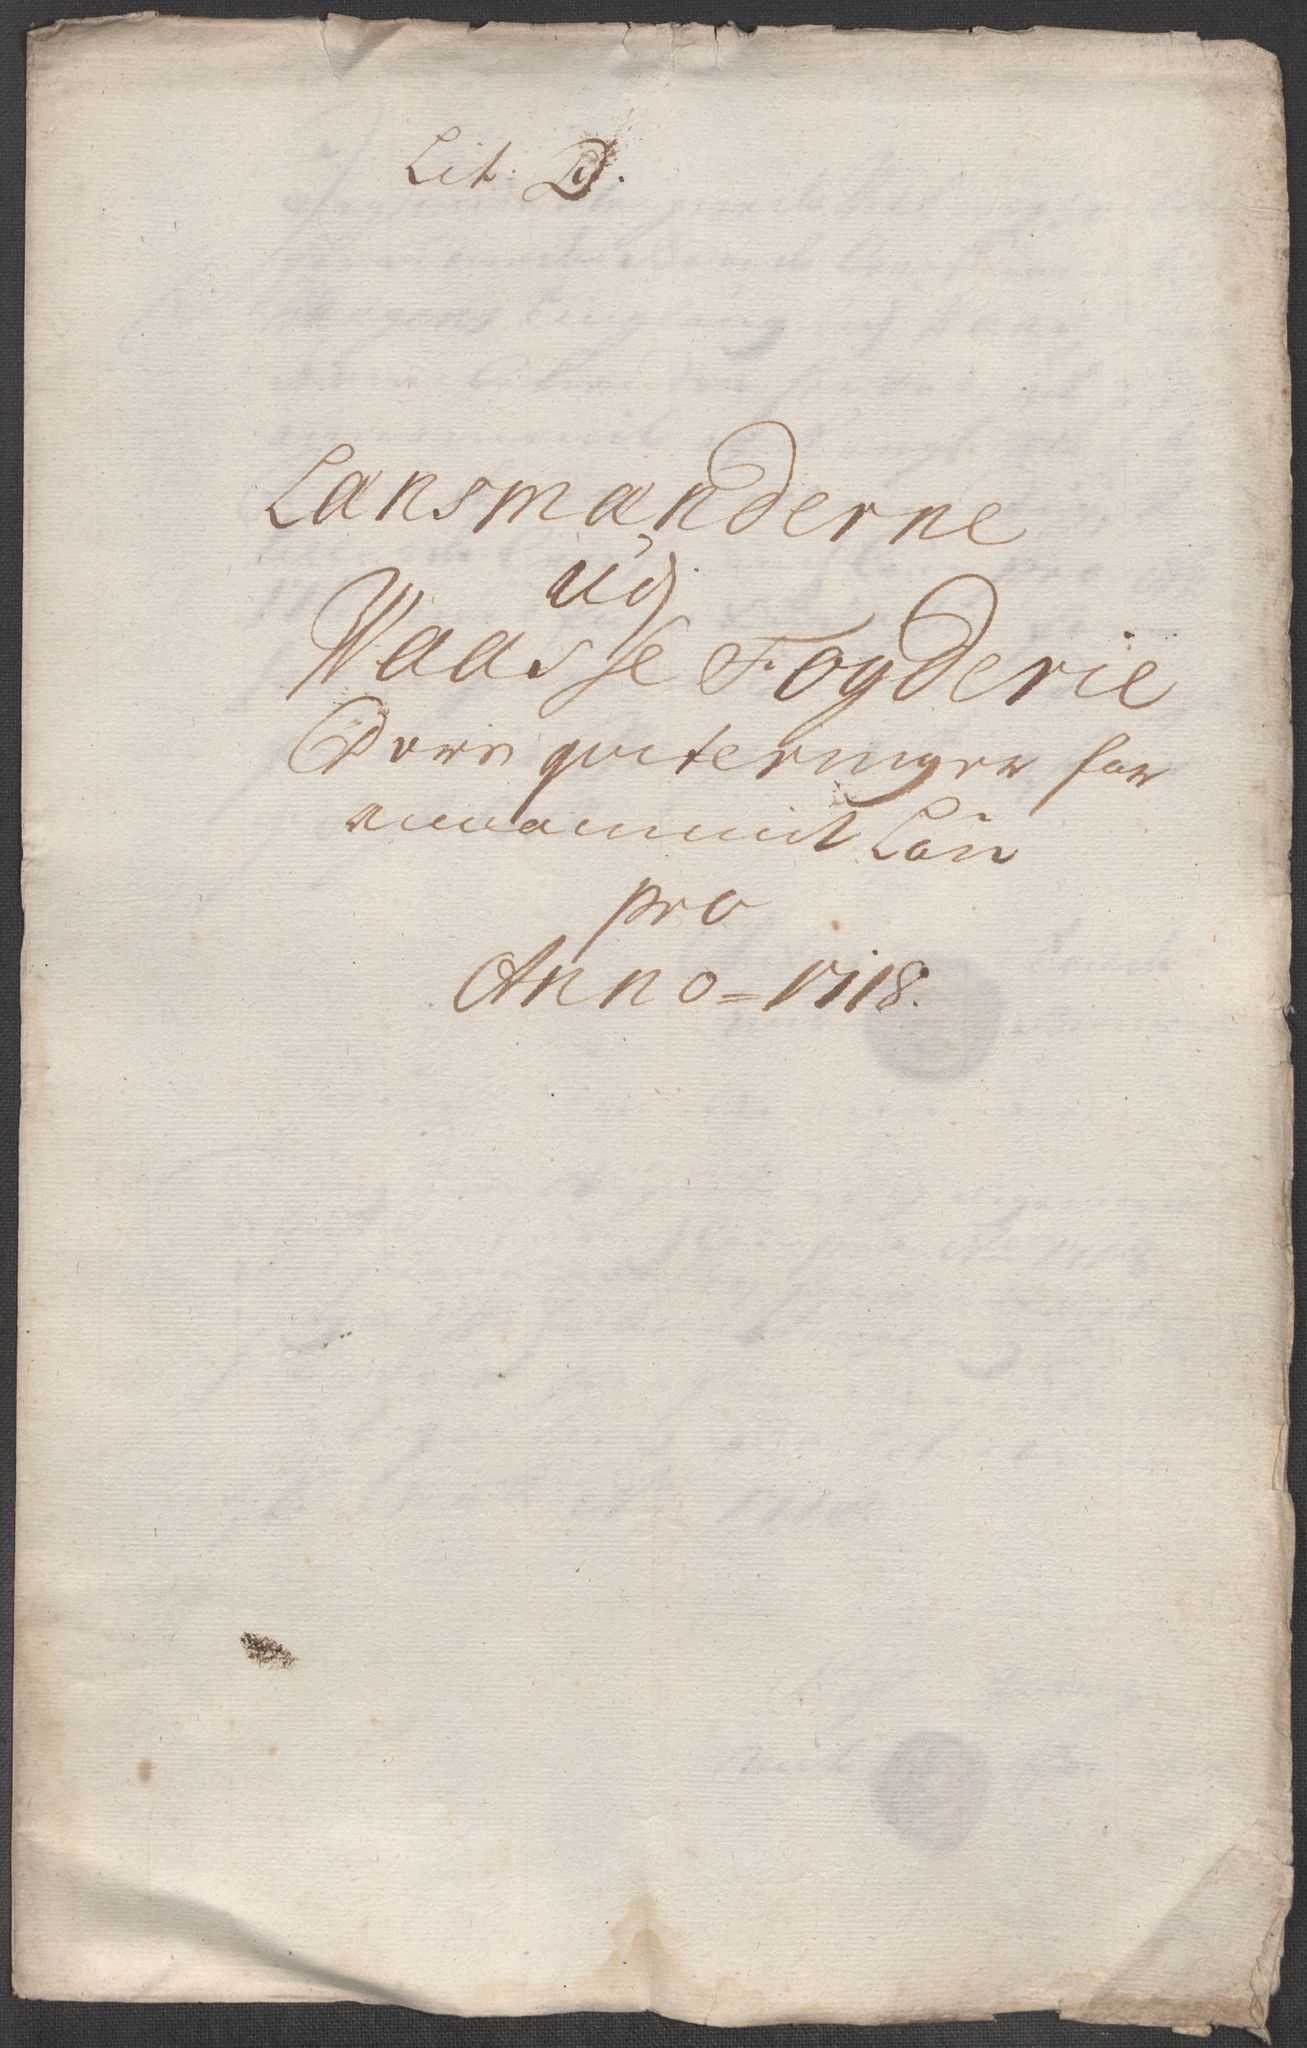 Lit: D.
Lensmænderne
udj
Waasse Fogderie
Deris qviteringer for
annammit Løn
pro
Anno = 1718.